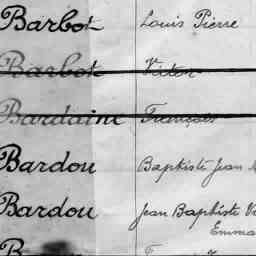 Barbot Louis Pierre
Barbot Victor
Bardaine François
Bardou Baptiste Jean
Bardou Jean Baptiste